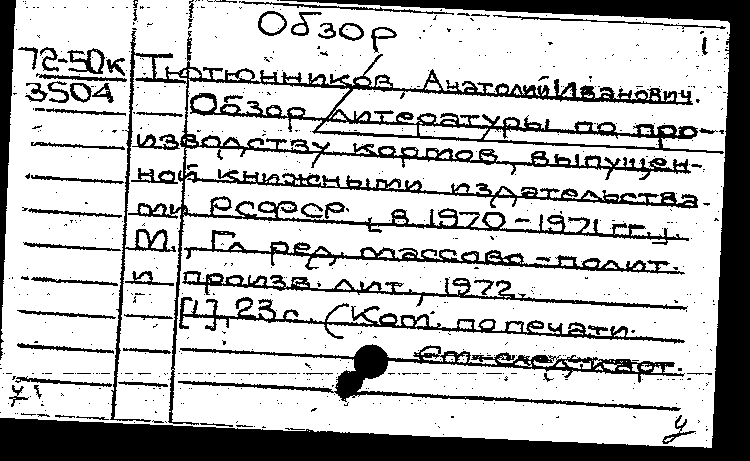 Обзор
1
72-50к Тютюнников, Анатолий Иванович.
3504 Обзор литературы по про-
изводству кормов, выпущен-
ной книжными издательства-
ми РСФСР [в 1970-1971 гг.].
М., Гл. ред. массово-полит.
и произв. лит., 1972.
[1], 23 с. (Ком. по печати.
См. след. карт.